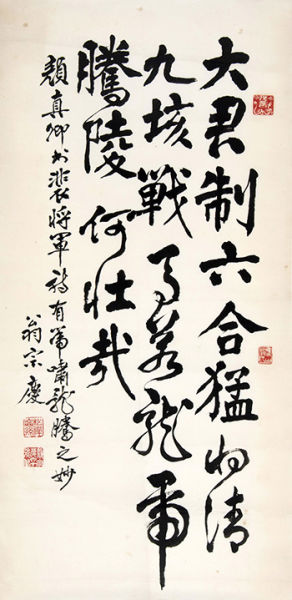 大君制六合猛将清
九垓戰马若龙虎
騰陵何壮哉
顏真卿书裴将軍诗有虎嘯龍騰之妙
翁宗慶